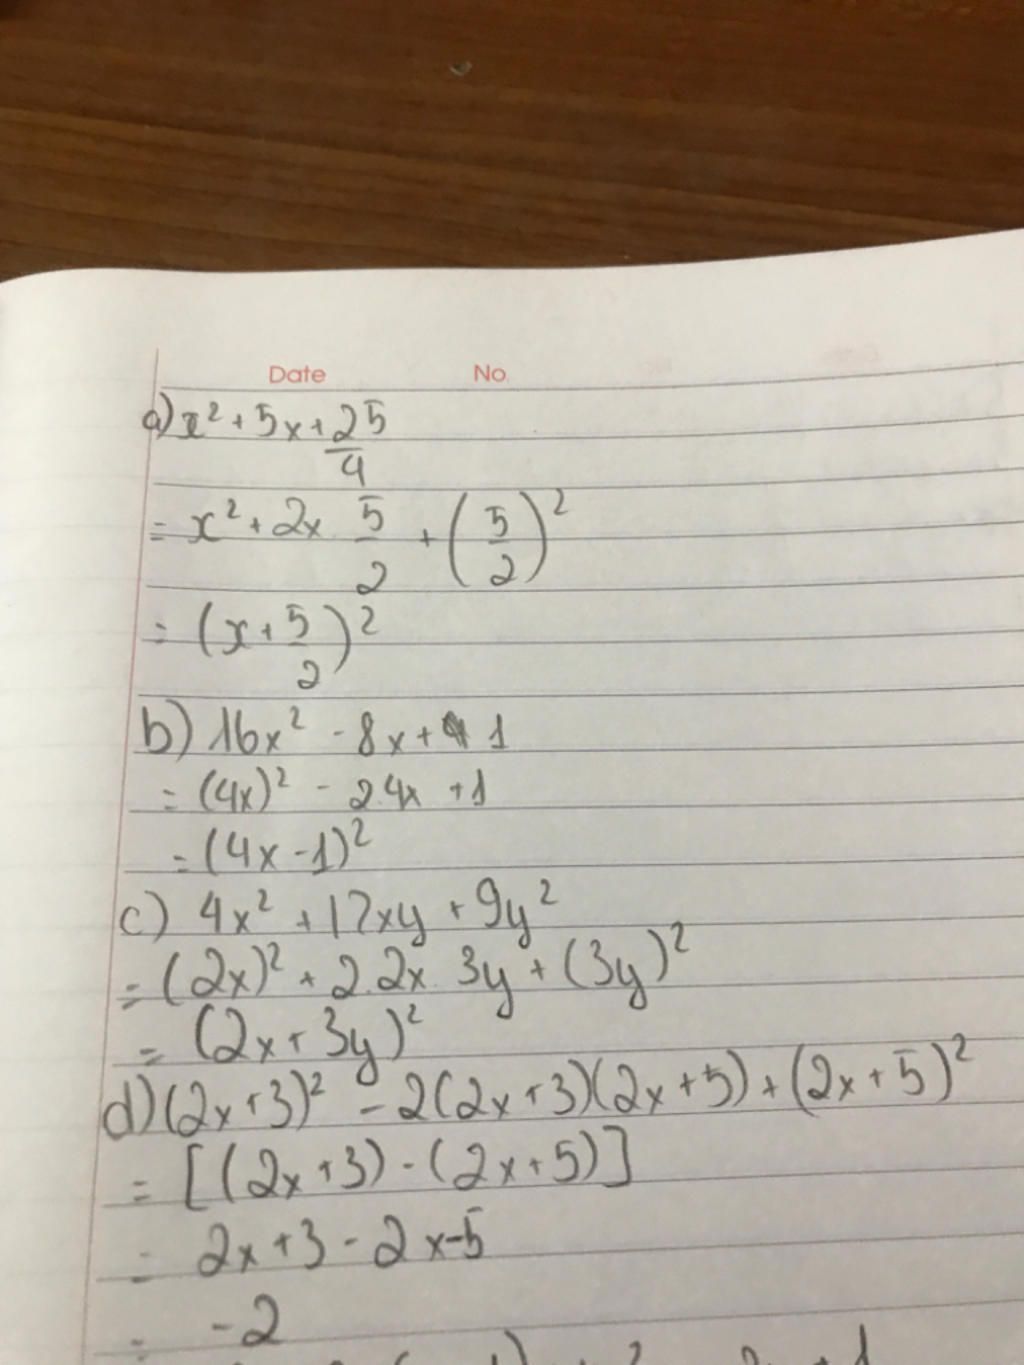 Date No.
a) x² + 5x + 25/4
= x² + 2x 5/2 + (5/2)²
= (x + 5/2)²
b) 16x² - 8x + 1
= (4x)² - 2.4x + 1
= (4x - 1)²
c) 4x² + 12xy + 9y²
= (2x)² + 2.2x. 3y + (3y)²
= (2x + 3y)²
d) (2x + 3)² - 2(2x + 3)(2x + 5) + (2x + 5)²
= [(2x + 3) - (2x + 5)]
= 2x + 3 - 2x - 5
= -2